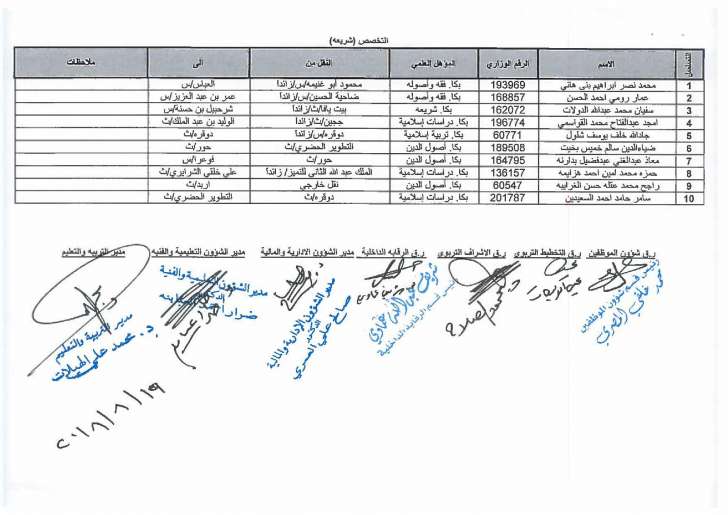 التخصص (شريعه)
التسلسل الاسم الرقم الوزاري المؤهل العلمي النقل من الى ملاحظات
1 محمد نصر ابراهيم بني هاني 193969 بكا. فقه وأصوله محمود أبو غنيمه/س/زائدا العباس/س
2 عمار رومي احمد الحسن 168857 بكا. فقه وأصوله ضاحية الحسين/س/زائدا عمر بن عبد العزيز/س
3 سفيان محمد عبدالله الدولات 162072 بكا. شريعه بيت يافا/ث/زائدا شرحبيل بن حسنة/س
4 امجد عبدالفتاح محمد القواسمي 196774 بكا. دراسات إسلامية ججين/ث/زائدا الوليد بن عبد الملك/ث
5 جادالله خلف يوسف شلول 60771 بكا. تربية إسلامية دوقره/س/زائدا دوقره/ث
6 ضياءالدين سالم خميس بخيت 189508 بكا. أصول الدين التطوير الحضري/ث حور/ث
7 معاذ عبدالغني عبدفضيل بدارنه 164795 بكا. أصول الدين حور/ث فوعرا/س
8 حمزه محمد امين احمد هزايمه 136157 بكا. دراسات إسلامية الملك عبد الله الثاني للتميز/ زائدا علي خلقي الشرايري/ث
9 راجح محمد عقله حسن الغرايبه 60547 بكا. أصول الدين نقل خارجي اربد/ث
10 سامر حامد احمد السعيدين 201787 بكا. دراسات إسلامية دوقره/ث التطوير الحضري/ث
ر.ق شؤون الموظفين ر.ق التخطيط التربوي ر.ق الاشراف التربوي ر.ق الرقابه الداخلية مدير الشؤون الادارية والمالية مدير الشؤون التعليمية والفنيه مدير التربيه والتعليم
رئيس قسم شؤون الموظفين
رئيس قسم الرقابة الداخلية
مدير الشؤون الإدارية والمالية
الدكتور
صالح علي العمري
مدير الشؤون التعليمية والفنية
مدير التربية والتعليم
د. محمد علي الهيلات
٢٠١٨/٨/١٩